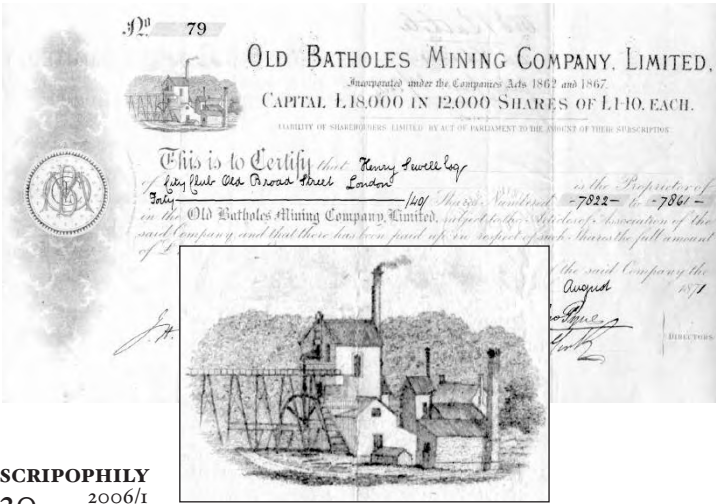 No 79
OLD BATHOLES MINING COMPANY, LIMITED,
Incorporated under the Companies Acts 1862 and 1867.
CAPITAL £18,000 IN 12,000 SHARES OF £1-10. EACH.
LIABILITY OF SHAREHOLDERS LIMITED BY ACT OF PARLIAMENT TO THE AMOUNT OF THEIR SUBSCRIPTION
This is to Certify that Henry Sewell Esq
of City Club Old Broad Street London is the Proprietor of
Forty /40/ Shares Numbered -7822- to -7861-
in the Old Batholes Mining Company, Limited, subject to the Articles of Association of the
said Company, and that there has been paid up in respect of such Shares the full amount
of £
of the said Company the
August 1871
J. H.
DIRECTORS
SCRIPOPHILY
30 2006/1